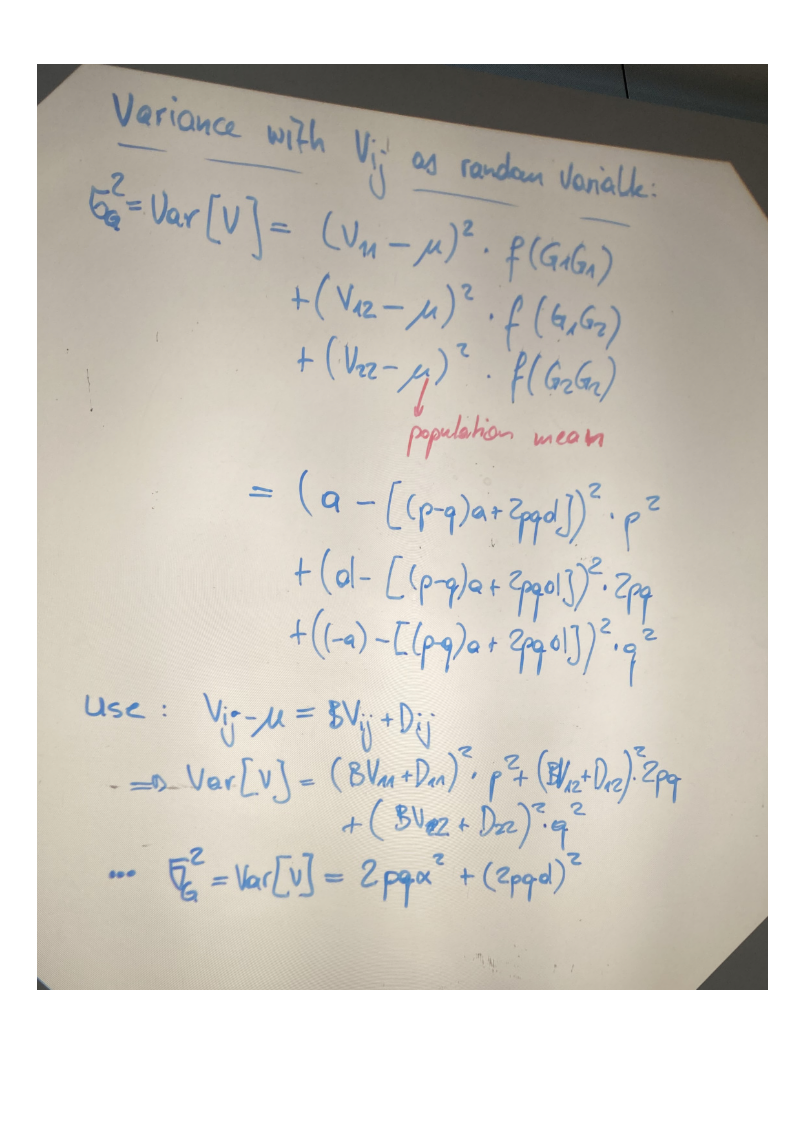 Variance with Vij as random variable:
σ_G² = Var[V] = (V₁₁ − μ)² · f(G₁G₁)
+ (V₁₂ − μ)² · f(G₁G₂)
+ (V₂₂ − μ)² · f(G₂G₂)
population mean
= (a − [(p-q)a + 2pqd])² · p²
+ (d − [(p-q)a + 2pqd])² · 2pq
+ ((-a) − [(p-q)a + 2pqd])² · q²
use : Vij − μ = BVij + Dij
⇒ Var[V] = (BV₁₁ + D₁₁)² · p² + (BV₁₂ + D₁₂)² · 2pq
+ (BV₂₂ + D₂₂)² · q²
... σ_G² = Var[V] = 2pqα² + (2pqd)²